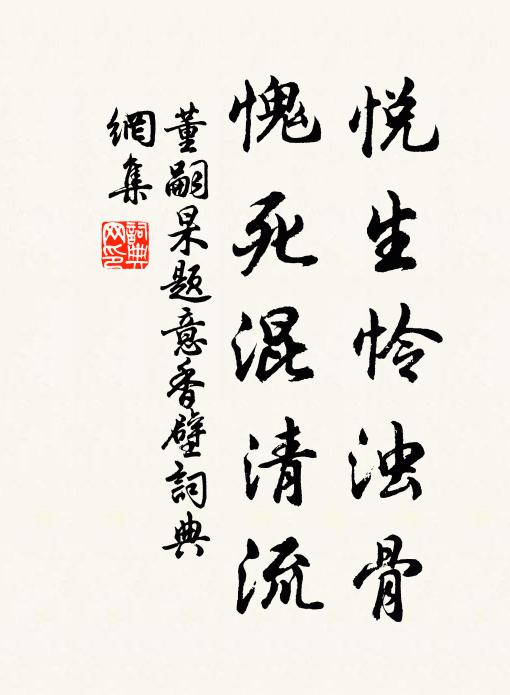 悦生怜浊骨
愧死混清流
董嗣杲题意香壁詞典
網集
詞典
网印